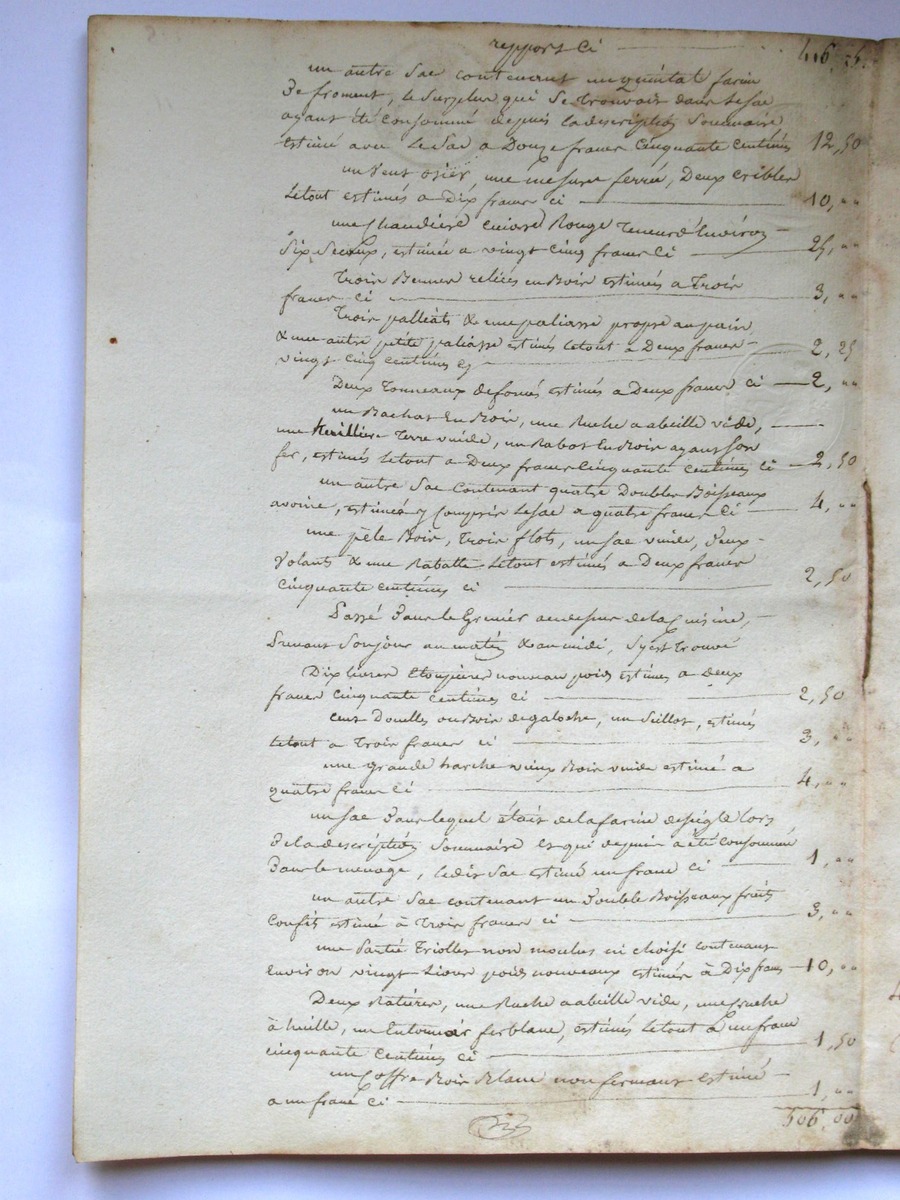 repport ci 416, 75
un autre Sac contenant un quintal farine
De froment, le Surplus qui Se trouvait dans le Sac
ayant été Consommé depuis la description Sommaire
estimé avec le Sac a Douze francs Cinquante Centimes 12, 50
un vent osier, une mesure ferrée, Deux cribles
Letout estimés a Dix francs ci 10, ""
une chaudiere cuivre Rouge Teneur d'environ
Six Seaux, estimée a vingt cinq francs Ci 25, ""
Trois Bennes reliées en Bois estimées a Trois
francs Ci 3, ""
Trois palliats & une paliasse propre au pain
& une autre petite paliasse estimés letout a Deux francs
vingt cinq centimes cy 2, 25
Deux Tonneaux defoncés estimés a Deux francs ci 2, ""
un Bachat En Bois, une Ruche a abeille vide,
une huilliere Terre vuide, un Rabot En Bois ayant Son
fer, estimés Letout a Deux francs Cinquante centimes Ci 2, 50
un autre Sac Contenant quatre Doubles Boisseaux
avoine, estimés y Compris le Sac a quatre francs Ci 4, ""
une pèle Bois, Trois flots, un Sac vuide, Deux
Volants & une Rabatte Letout estimés a Deux francs
Cinquante centimes ci 2, 50
Passé Dans le Grenier audessus de la Cuisine,
Prenant Son jour au matin & au midi, Sy est trouvé
Dix livres Etoupieres nouveau poids estimés a Deux
francs Cinquante Centimes Ci 2, 50
cent Douelles ou Bois de galoche, un Seillot, estimés
Letout a Trois francs ci 3, ""
une grande harche vieux Bois vuide estimé a
quatre francs Ci 4, ""
un Sac Dans lequel etait de la farine de Seigle lors
De la description Sommaire Et qui depuis a été Consommée
Dans le menage, ledit Sac estimé un franc ci 1, ""
un autre Sac contenant un Double Boisseaux fruits
Confits estimé à Trois francs ci 3, ""
une Partie Triolles non moulus ni choisi contenant
Environ vingt Livres poids nouveaux estimés à Dix francs 10, ""
Deux Ratiéres, une Ruche a abeille vide, une cruche
à huille, un Entonnoir ferblanc, estimés Letout à un franc
cinquante Centimes ci 1, 50
un Coffre Bois Blanc non fermant estimé
a un franc Ci 1, ""
506, 00